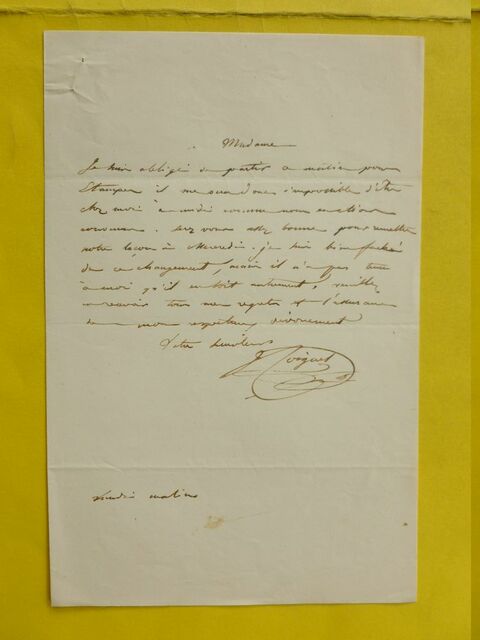 Madame
Je suis obligé de partir ce matin pour
Etampes il me sera donc impossible d'être
chez moi à midi comme nous en étions
convenus. serez vous assez bonne pour remettre
notre leçon à Mercredi. je suis bien fâché
de ce changement, mais il n'a pas tenu
à moi qu'il en soit autrement, veuillez
recevoir tous mes regrets et l'assurance
de mon respectueux dévouement
Votre serviteur
Coignet
matin